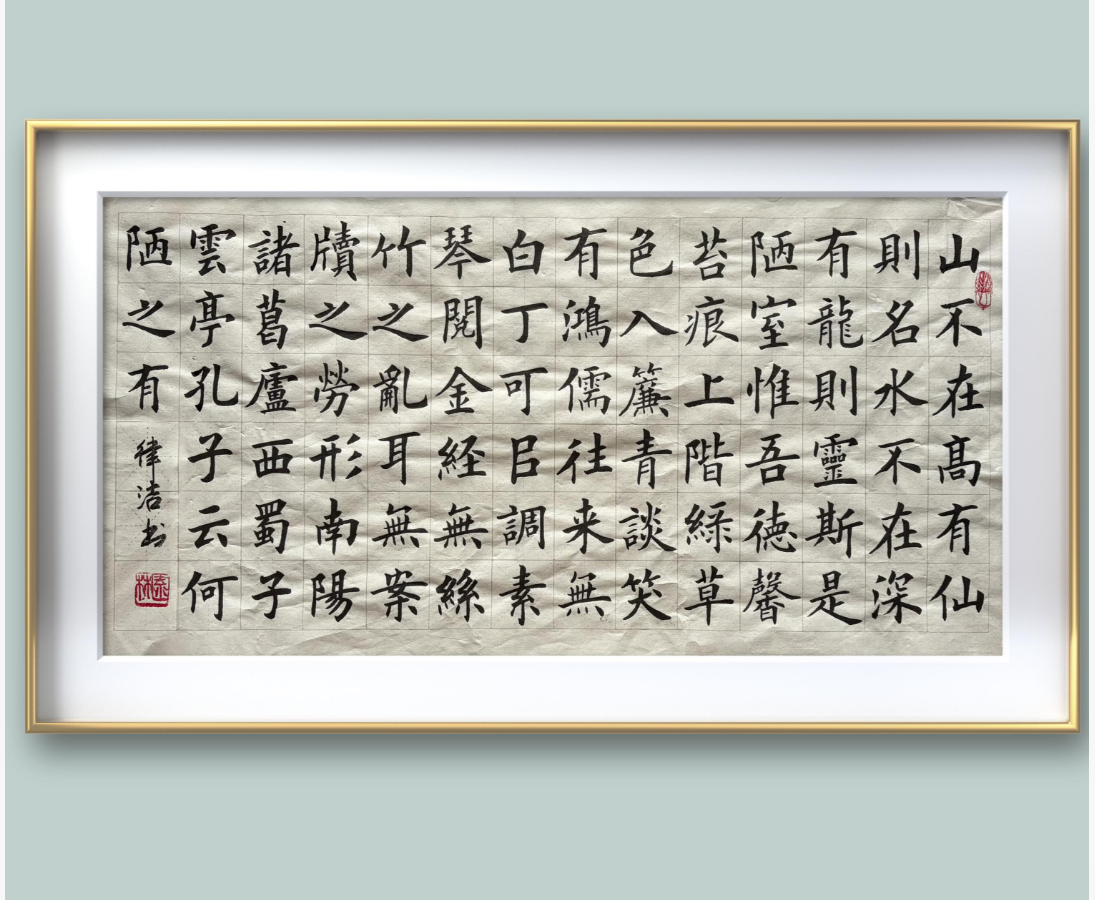 山不在髙有仙
則名水不在深
有龍則靈斯是
陋室惟吾徳馨
苔痕上階緑草
色入簾青談笑
有鴻儒往来無
白丁可㠯調素
琴閲金経無絲
竹之亂耳無案
牘之勞形南陽
諸葛廬西蜀子
雲亭孔子云何
陋之有
律洁书